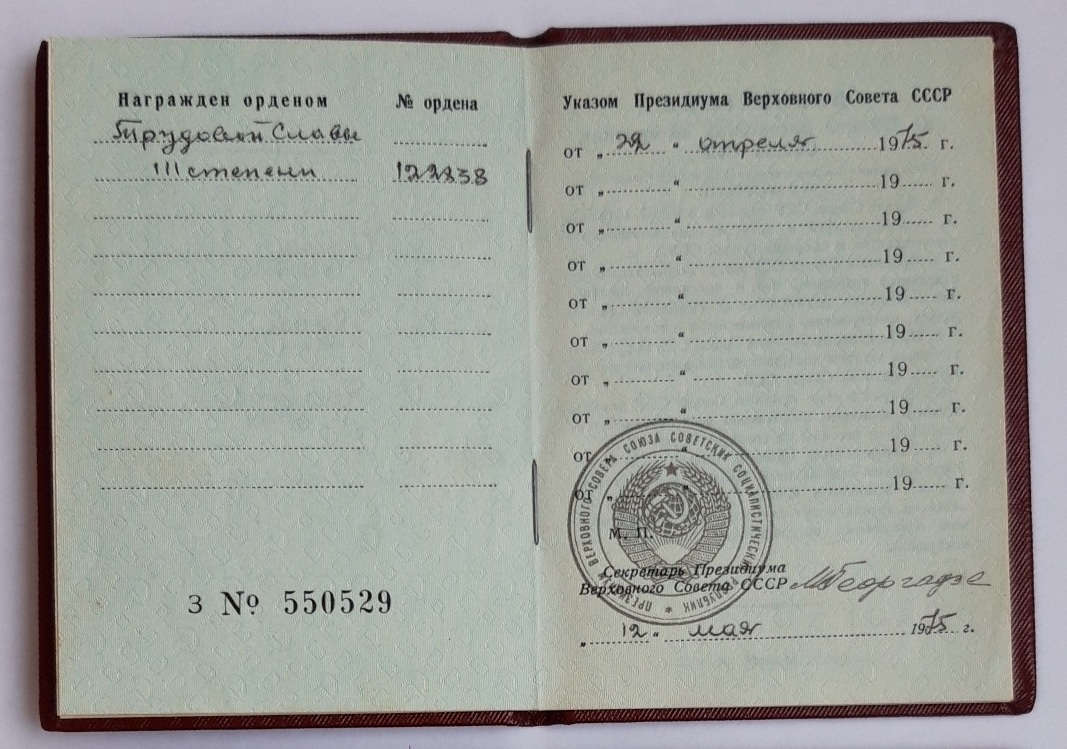 Награжден орденом
№ ордена
Трудовой Славы
III степени
122838
З № 550529
Указом Президиума Верховного Совета СССР
от „ 22 “ апреля 1975 г.
от „ “ 19 г.
от „ “ 19 г.
от „ “ 19 г.
от „ “ 19 г.
от „ “ 19 г.
от „ “ 19 г.
от „ “ 19 г.
от „ “ 19 г.
от „ “ 19 г.
ПРЕЗИДИУМ ВЕРХОВНОГО СОВЕТА СОЮЗА СОВЕТСКИХ СОЦИАЛИСТИЧЕСКИХ РЕСПУБЛИК
М. П.
Секретарь Президиума
Верховного Совета СССР МГеоргадзе
„ 12 “ мая 1975 г.